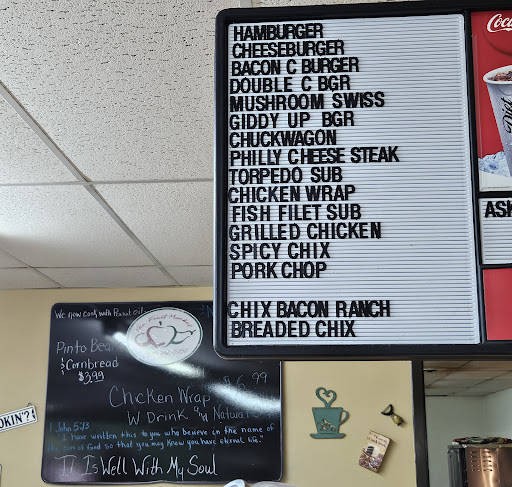 HAMBURGER
CHEESEBURGER
BACON C BURGER
DOUBLE C BGR
MUSHROOM SWISS
GIDDY UP BGR
CHUCKWAGON
PHILLY CHEESE STEAK
TORPEDO SUB
CHICKEN WRAP
FISH FILET SUB
GRILLED CHICKEN
SPICY CHIX
PORK CHOP
CHIX BACON RANCH
BREADED CHIX
Coca
Diet
ASK
We now cook with Peanut Oil
Fruit Market
Pinto Bea
& Cornbread
$3.99
Chicken Wrap $6.99
W Drink and Natural
1 John 5:13
"I have written this to you who believe in the name of
the son of God so that you may know you have eternal life."
It Is Well With My Soul
OKIN'?!